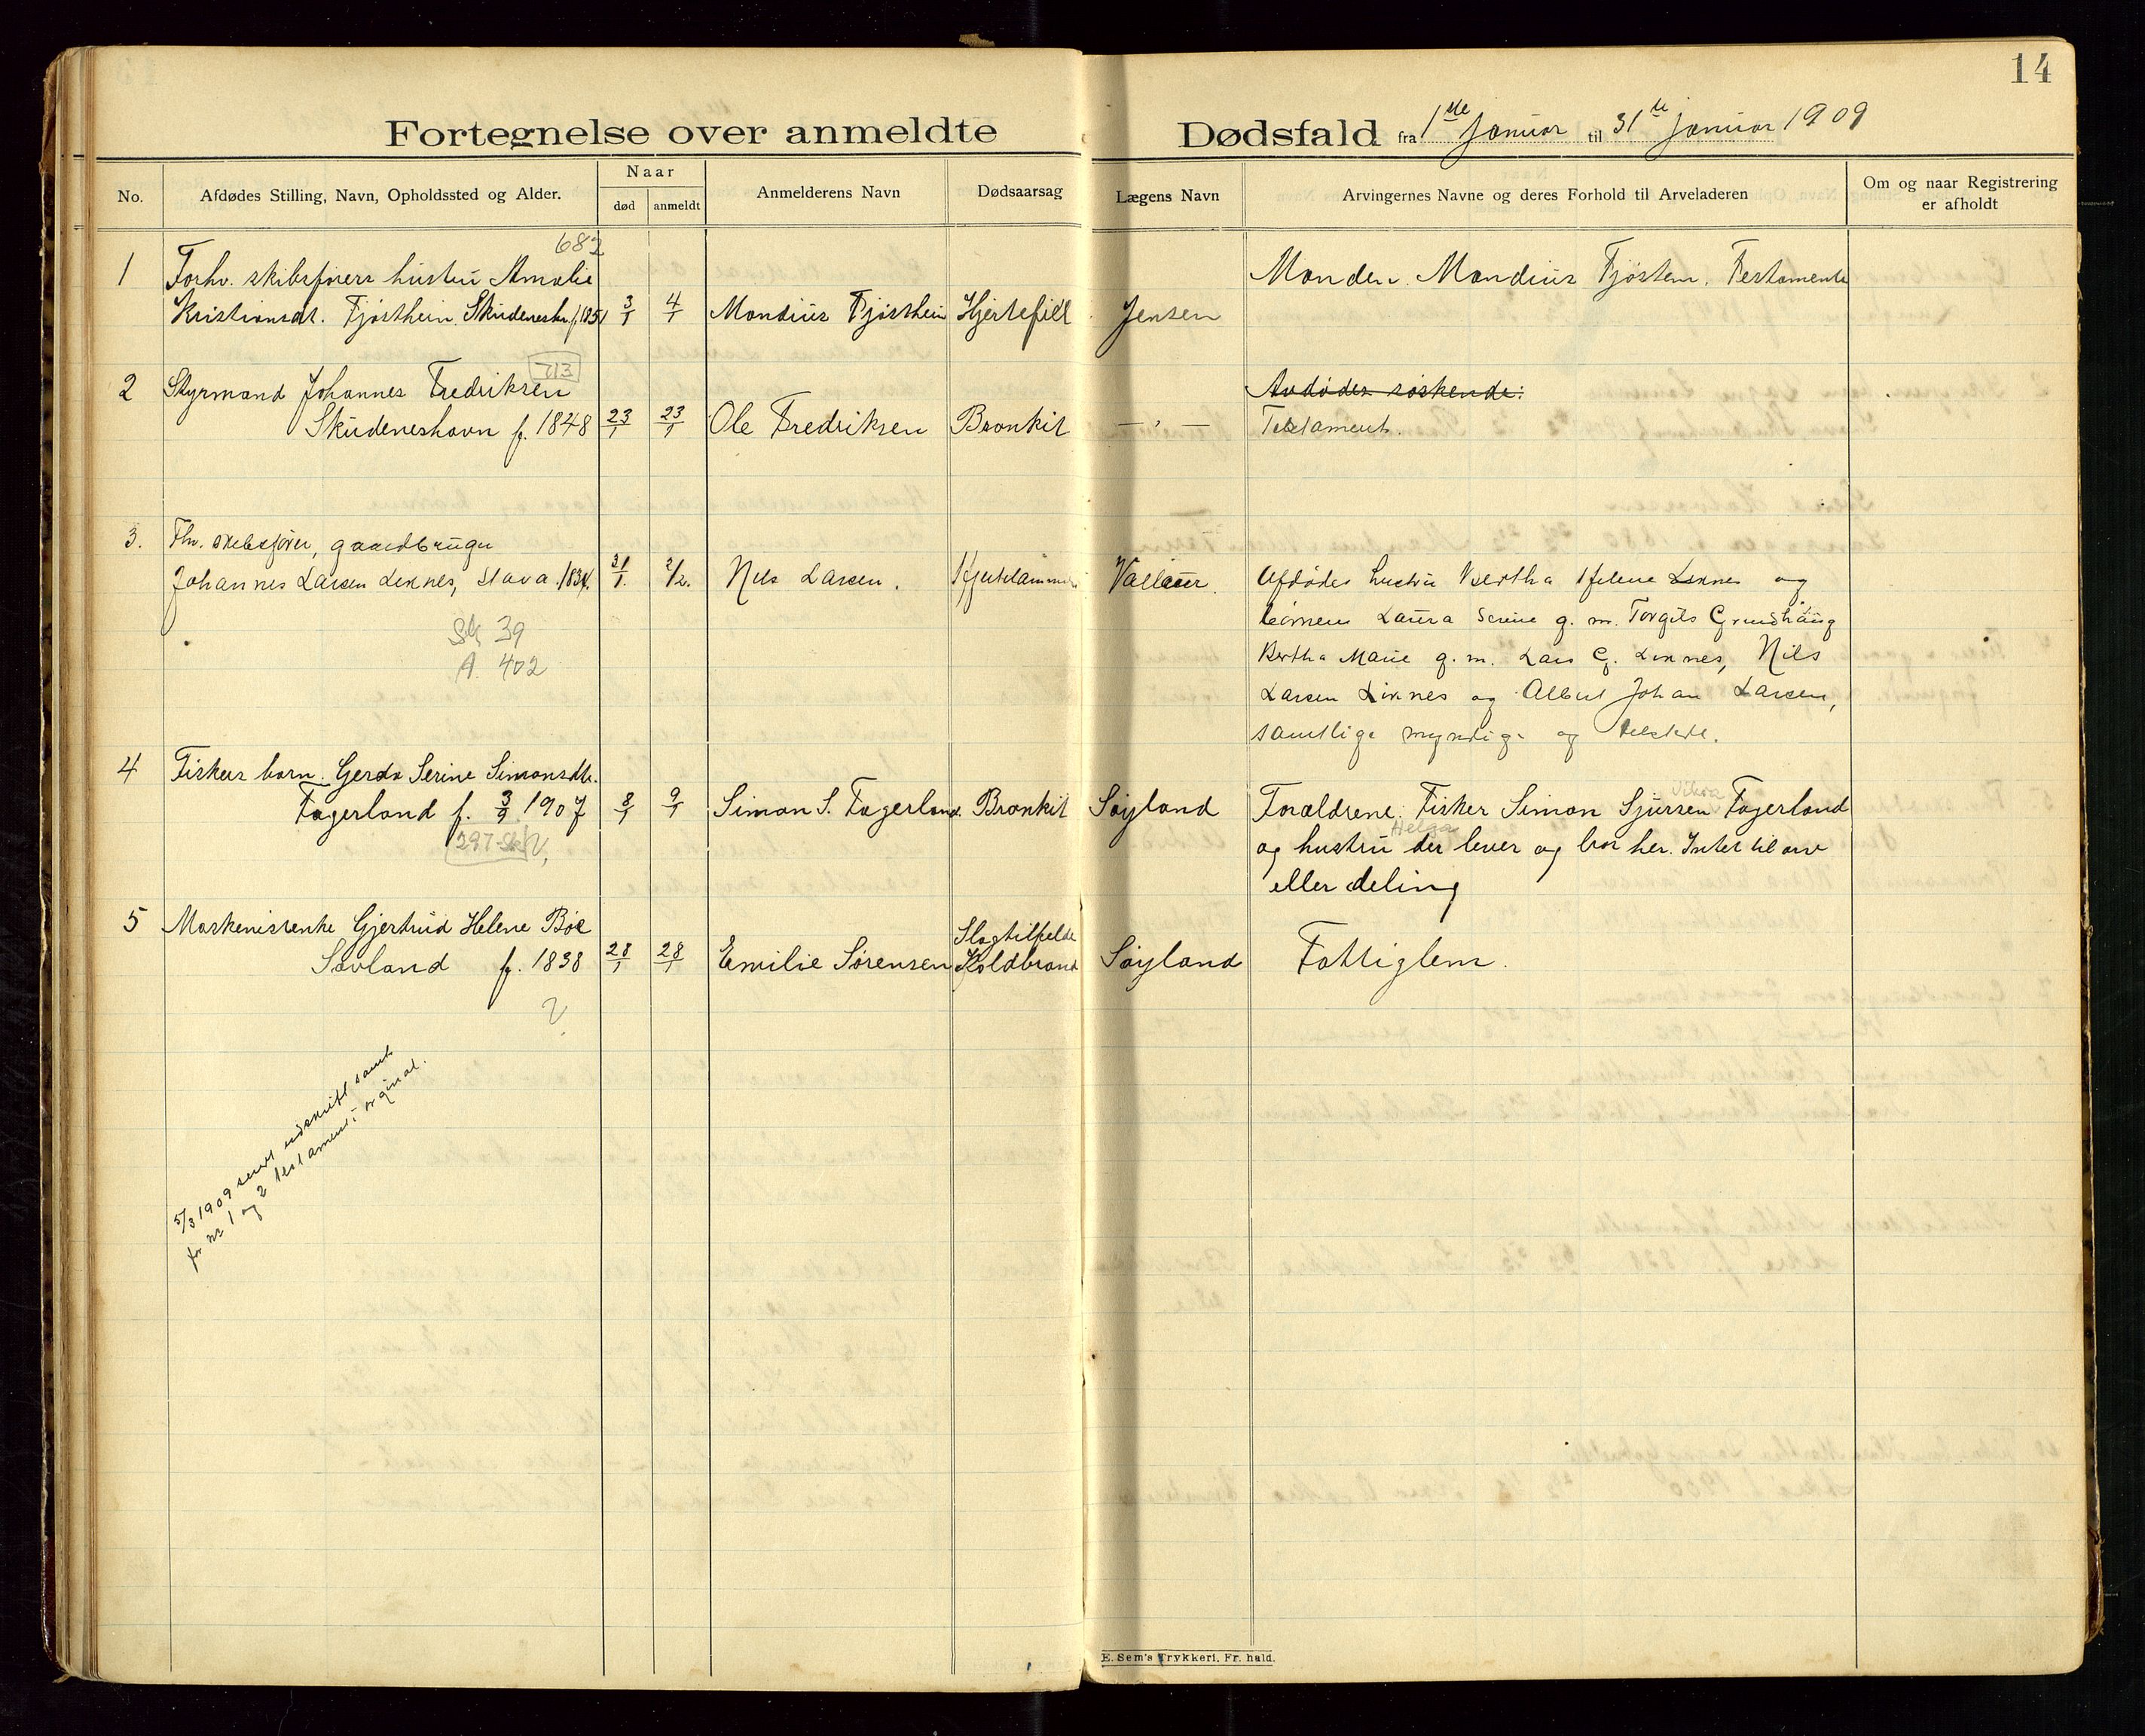 14
Fortegnelse over anmeldte Dødsfald fra 1ste januar til 31te januar 1909
No. Afdødes Stilling, Navn, Opholdssted og Alder. Naar død anmeldt Anmelderens Navn Dødsaarsag Lægens Navn Arvingernes Navne og deres Forhold til Arveladeren Om og naar Registrering er afholdt
682
1 Forhv. skibsførers hustru Amalie
Kristiansdt. Fjøsthein Skudeneshn. f. 1851 3/1 4/1 Mandius Fjøsthein Hjertefeil Jensen
Manden Mandius Fjøstein. Testamente
713
2 Styrmand Johannes Fredriksen
Skudeneshavn f. 1848 23/1 23/1 Ole Fredriksen Bronkit — " —
Avdødes søskende:
Testament.
3. Fhv. skibsfører, gaardbruger
Johannes Larsen Liknes, Stava. 1834. 31/1. 2/2. Nils Larsen. Hjertelammelse Vallaur.
Afdødes hustru Bertha Helene Liknes og
børnene Laura Serine g. m. Torgils Grindhaug
Bertha Marie g. m. Lars G. Liknes, Nils
Larsen Liknes og Albert Johan Larsen,
samtlige myndige og tilstede.
Sk 39
A. 402
4 Fiskers barn Gerda Serine Simonsdtr.
Fagerland f. 3/9 1907 8/1 9/1 Simon S. Fagerland. Bronkit Søyland
297-Sk V,
Vikra
Foraldrene: Fisker Simon Sjursen Fagerland
Helga
og hustru der lever og bor her. Intet til arv
eller deling
5 Maskenistenke Gjertrud Helene Bøe
Søvland f. 1838 28/1 28/1 Emilie Sørensen Slagtilfelde Koldbrand Søyland Fattiglem.
?
5/3 1909 sendt udskrift samt
for nr 1 og 2 testament i orginal.
E. Sem's Trykkeri, Fr. hald.